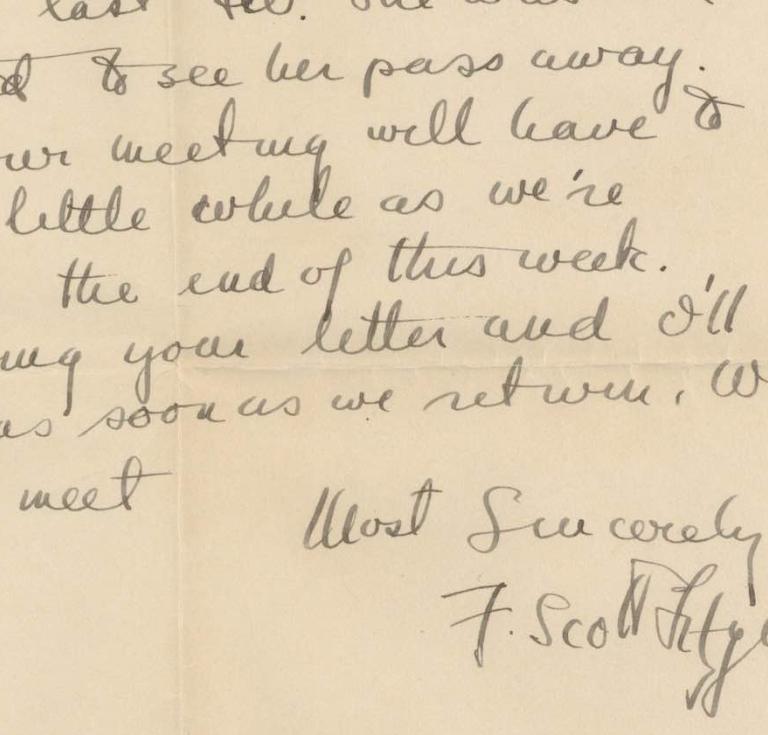 last Feb. She was
to see her pass away.
our meeting will have to
little while as we're
the end of this week.
ing your letter and I'll
as soon as we return. W
meet
Most Sincerely
F. Scott Fitzge